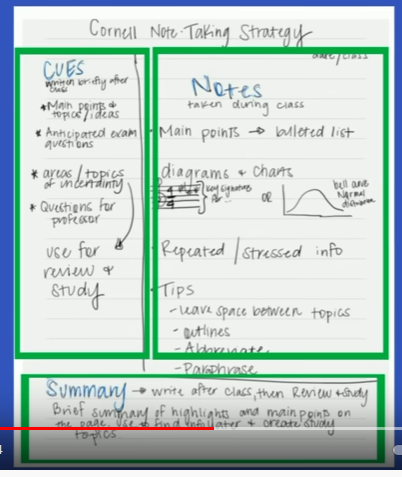 Cornell Note-Taking Strategy
date/class
CUES
written briefly after
class
*Main points &
topics/ideas
* Anticipated exam
questions
* areas/topics
of uncertainty
* Questions for
professor
use for
review &
study
Notes
taken during class
Main points → bulleted list
diagrams & charts
4
4
key signature
OR
bell curve
Normal
Repeated/stressed info
Tips
- leave space between topics
- outlines
- Abbreviate
- Paraphrase
Summary → write after class, then Review & study
Brief summary of highlights and main points on
the page. Use to find info later & create study
topics